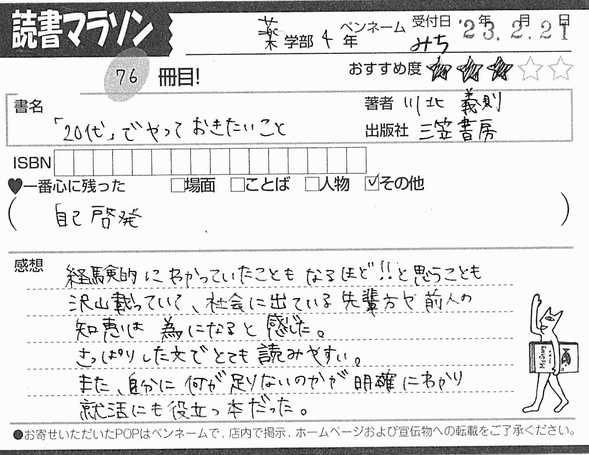 読書マラソン
薬学部 4年 ペンネーム みち 受付日 '23年2月21日
76冊目!
おすすめ度 ★★★☆☆
書名 「20代」でやっておきたいこと
著者 川北 義則
出版社 三笠書房
ISBN
♥一番心に残った □場面 □ことば □人物 ☑その他
( 自己啓発 )
感想
経験的にわかっていたことも なるほど!!と思うことも
沢山載っていて、社会に出ている先輩方や前人の
知恵は 為になると感じた。
さっぱりした文でとても読みやすい。
また、自分に何が足りないのかが明確にわかり
就活にも役立つ本だった。
●お寄せいただいたPOPはペンネームで、店内で掲示、ホームページおよび宣伝物への転載をご了承ください。